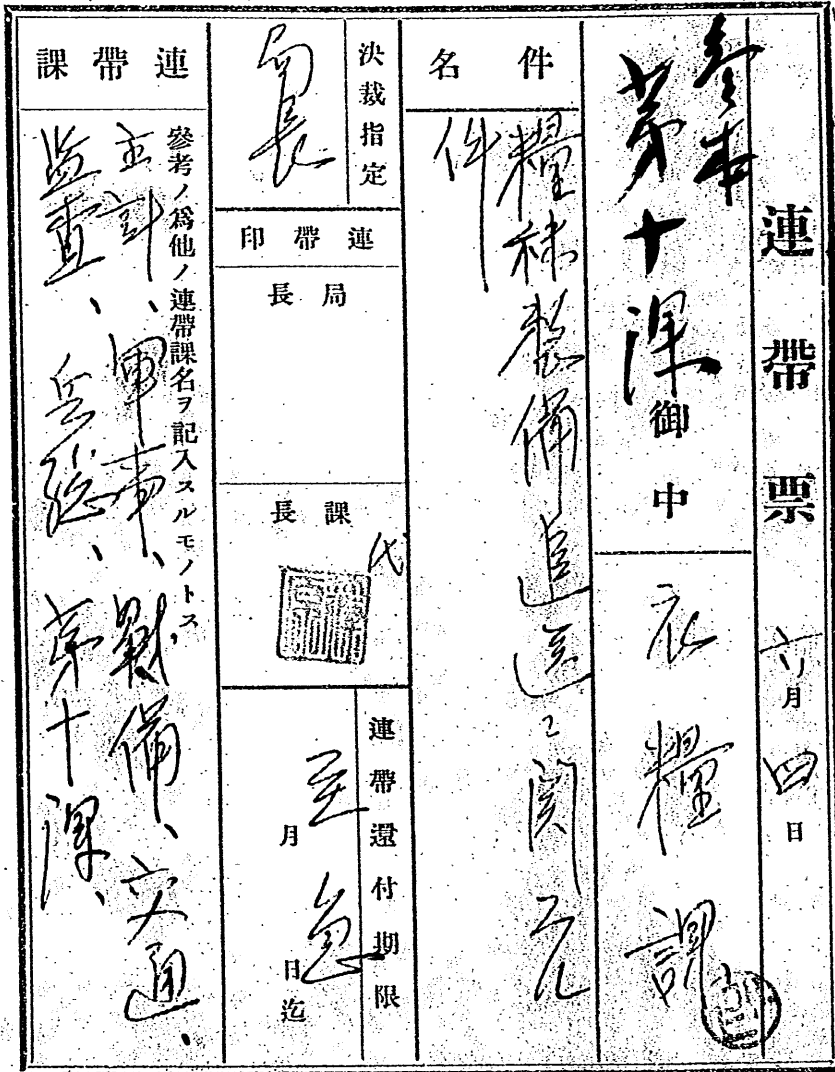 連帶票 六月四日
參本
第十課御中
衣糧課
件名
糧秣整備追送ニ関スル
件
決裁指定
局長
連帶印
局長
課長
代
連帶還付期限
至急
月 日迄
連帶課
參考ノ爲他ノ連帶課名ヲ記入スルモノトス、
主計、軍事、戰備、交通、
監査、兵總、第十課、